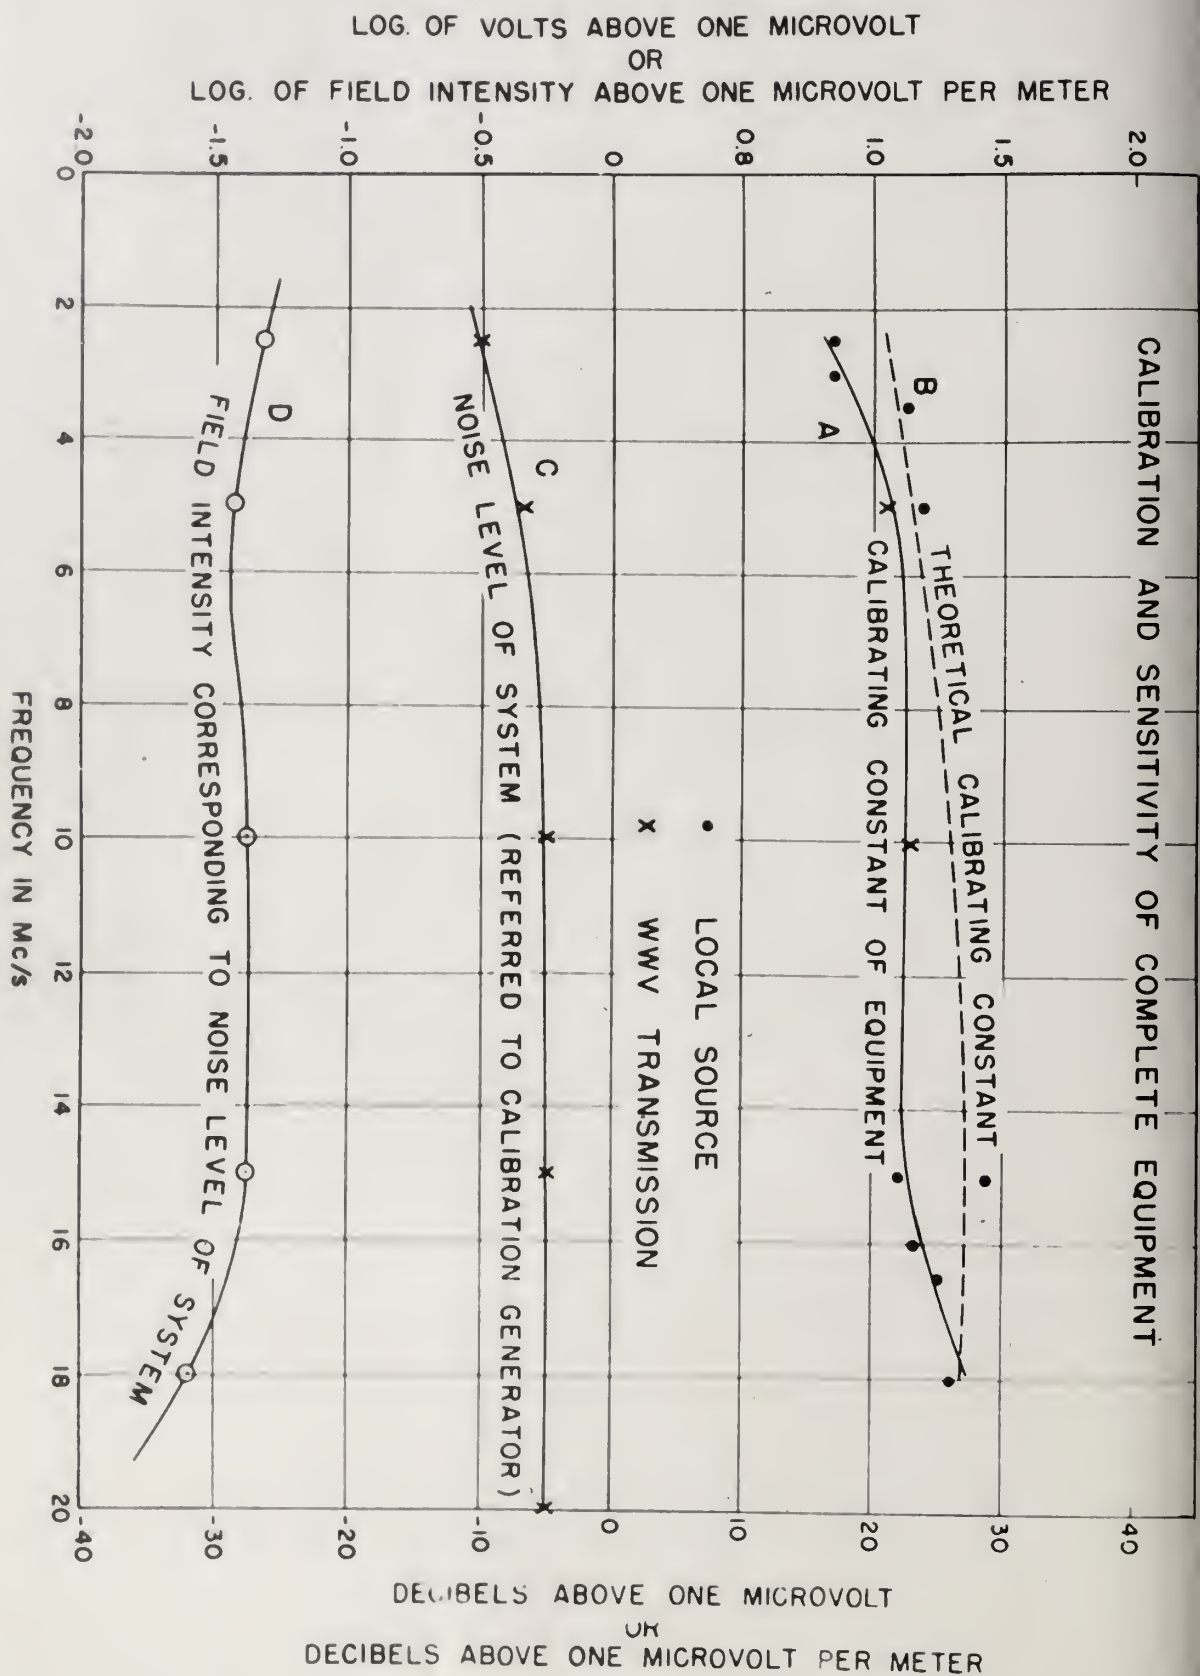 LOG. OF VOLTS ABOVE ONE MICROVOLT
OR
LOG. OF FIELD INTENSITY ABOVE ONE MICROVOLT PER METER
-2.0
-1.5
-1.0
-0.5
0
0.8
1.0
1.5
2.0
CALIBRATION AND SENSITIVITY OF COMPLETE EQUIPMENT
B
THEORETICAL CALIBRATING CONSTANT
A
CALIBRATING CONSTANT OF EQUIPMENT
LOCAL SOURCE
WWV TRANSMISSION
C
NOISE LEVEL OF SYSTEM (REFERRED TO CALIBRATION GENERATOR)
D
FIELD INTENSITY CORRESPONDING TO NOISE LEVEL OF SYSTEM
0
2
4
6
8
10
12
14
16
18
20
FREQUENCY IN Mc/s
-40
-30
-20
-10
0
10
20
30
40
DECIBELS ABOVE ONE MICROVOLT
OR
DECIBELS ABOVE ONE MICROVOLT PER METER